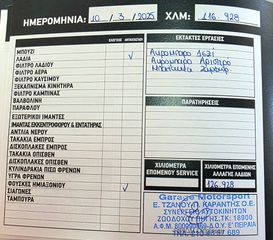 ΗΜΕΡΟΜΗΝΙΑ: 10 / 3 / 2025 ΧΛΜ: 116.928
ΕΛΕΓΧΟΣ ΑΝΤΙΚΑΤΑΣΤΑΣΗ
ΕΚΤΑΚΤΕΣ ΕΡΓΑΣΙΕΣ
ΜΠΟΥΖΙ
ΛΑΔΙΑ
ΦΙΛΤΡΟ ΛΑΔΙΟΥ
ΦΙΛΤΡΟ ΑΕΡΑ
ΦΙΛΤΡΟ ΚΑΥΣΙΜΟΥ
ΞΕΚΑΠΝΙΣΜΑ ΚΙΝΗΤΗΡΑ
ΦΙΛΤΡΟ ΚΑΜΠΙΝΑΣ
ΒΑΛΒΟΛΙΝΗ
ΠΑΡΑΦΛΟΥ
ΕΞΩΤΕΡΙΚΟΙ ΙΜΑΝΤΕΣ
ΙΜΑΝΤΑΣ ΕΚΚΕΝΤΡΟΦΟΡΟΥ & ΕΝΤΑΤΗΡΑΣ
ΑΝΤΛΙΑ ΝΕΡΟΥ
ΤΑΚΑΚΙΑ ΕΜΠΡΟΣ
ΔΙΣΚΟΠΛΑΚΕΣ ΕΜΠΡΟΣ
ΤΑΚΑΚΙΑ ΟΠΙΣΘΕΝ
ΔΙΣΚΟΠΛΑΚΕΣ ΟΠΙΣΘΕΝ
ΚΥΛΙΝΔΡΑΚΙΑ ΠΙΣΩ ΦΡΕΝΩΝ
ΥΓΡΑ ΦΡΕΝΩΝ
ΦΟΥΣΚΕΣ ΗΜΙΑΞΟΝΙΟΥ
ΣΙΑΓΩΝΕΣ
ΤΑΜΠΟΥΡΑ
Ακρόμπαρο
Ακρόμπαρο Αριστερό
ΠΑΡΑΤΗΡΗΣΕΙΣ
ΧΙΛΙΟΜΕΤΡΑ ΕΠΟΜΕΝΟΥ SERVICE
ΧΙΛΙΟΜΕΤΡΑ ΕΠΟΜΕΝΗΣ ΑΛΛΑΓΗΣ ΛΑΔΙΩΝ
126.928
Garage Motorsport
Ε. ΤΖΑΝΟΥ - Π. ΚΑΡΑΝΤΗΣ Ο.Ε.
ΣΥΝΕΡΓΕΙΟ ΑΥΤΟΚΙΝΗΤΩΝ
ΖΩΟΔΟΧΟΥ ΠΗΓΗΣ, ΤΚ: 18900